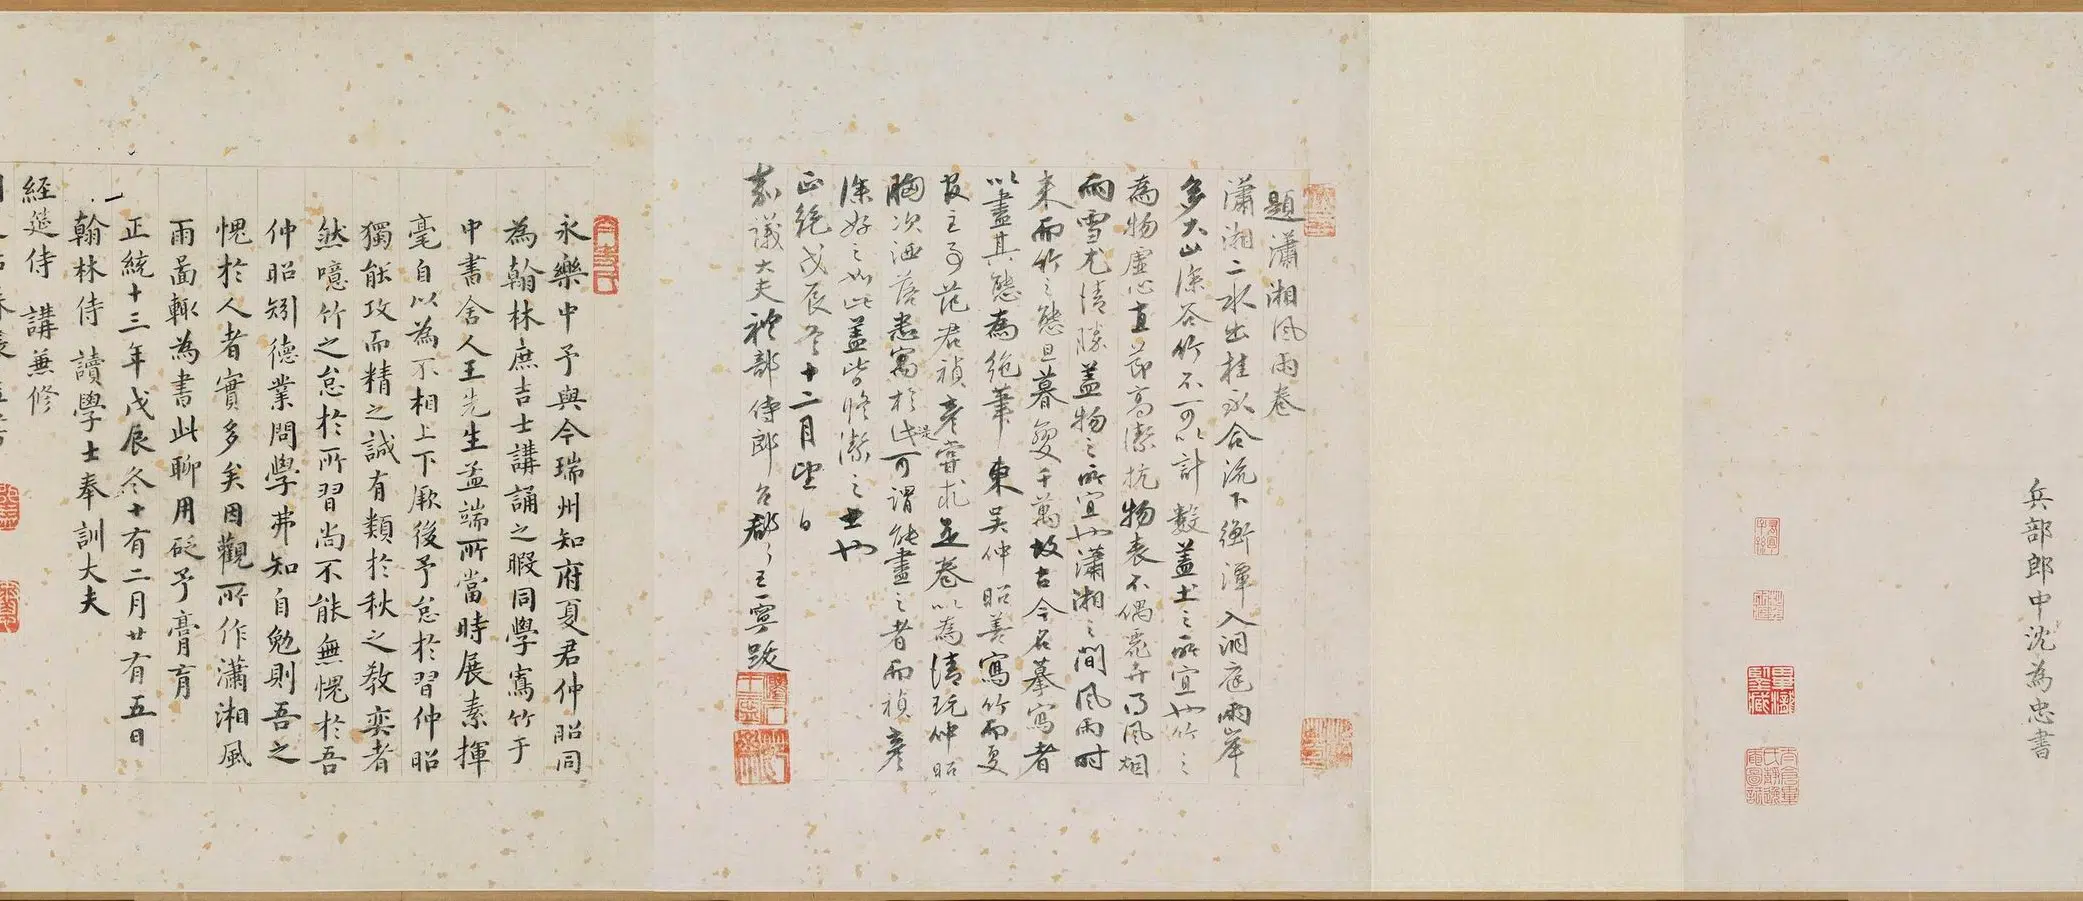 兵部郎中沈為忠書
題瀟湘風雨卷
瀟湘二水出桂永合流下衡潭入洞庭兩崖
多大山深谷竹不可以計數蓋土之所宜也竹之
為物虛心直節高潔抗物表不偶
而雪尤清勝蓋物之所宜也瀟湘之間風雨時
來而竹之態旦暮變千萬故古今名摹寫者
以盡其態為絕筆東吳仲昭善寫竹而夏
范君禎嘗求是卷以為清玩仲昭
胸次洒落悉寓於此可謂能盡之者而禎
深好之如此蓋皆脩潔之士也
正統戊辰冬十二月望日
嘉議大夫禮部侍郎王一寧跋
永樂中予與今瑞州知府夏君仲昭同
為翰林庶吉士講誦之暇同學寫竹于
中書舍人王先生孟端所當時展素揮
毫自以為不相上下厥後予怠於習仲昭
獨能攻而精之誠有類於秋之教奕者
然噫竹之怠於所習尚不能無愧於吾
仲昭矧德業問學弗知自勉則吾之
愧於人者實多矣因觀所作瀟湘風
雨圖輒為書此聊用砭予膏肓
正統十三年戊辰冬十有二月廿有五日
翰林侍讀學士奉訓大夫
經筵侍講兼修